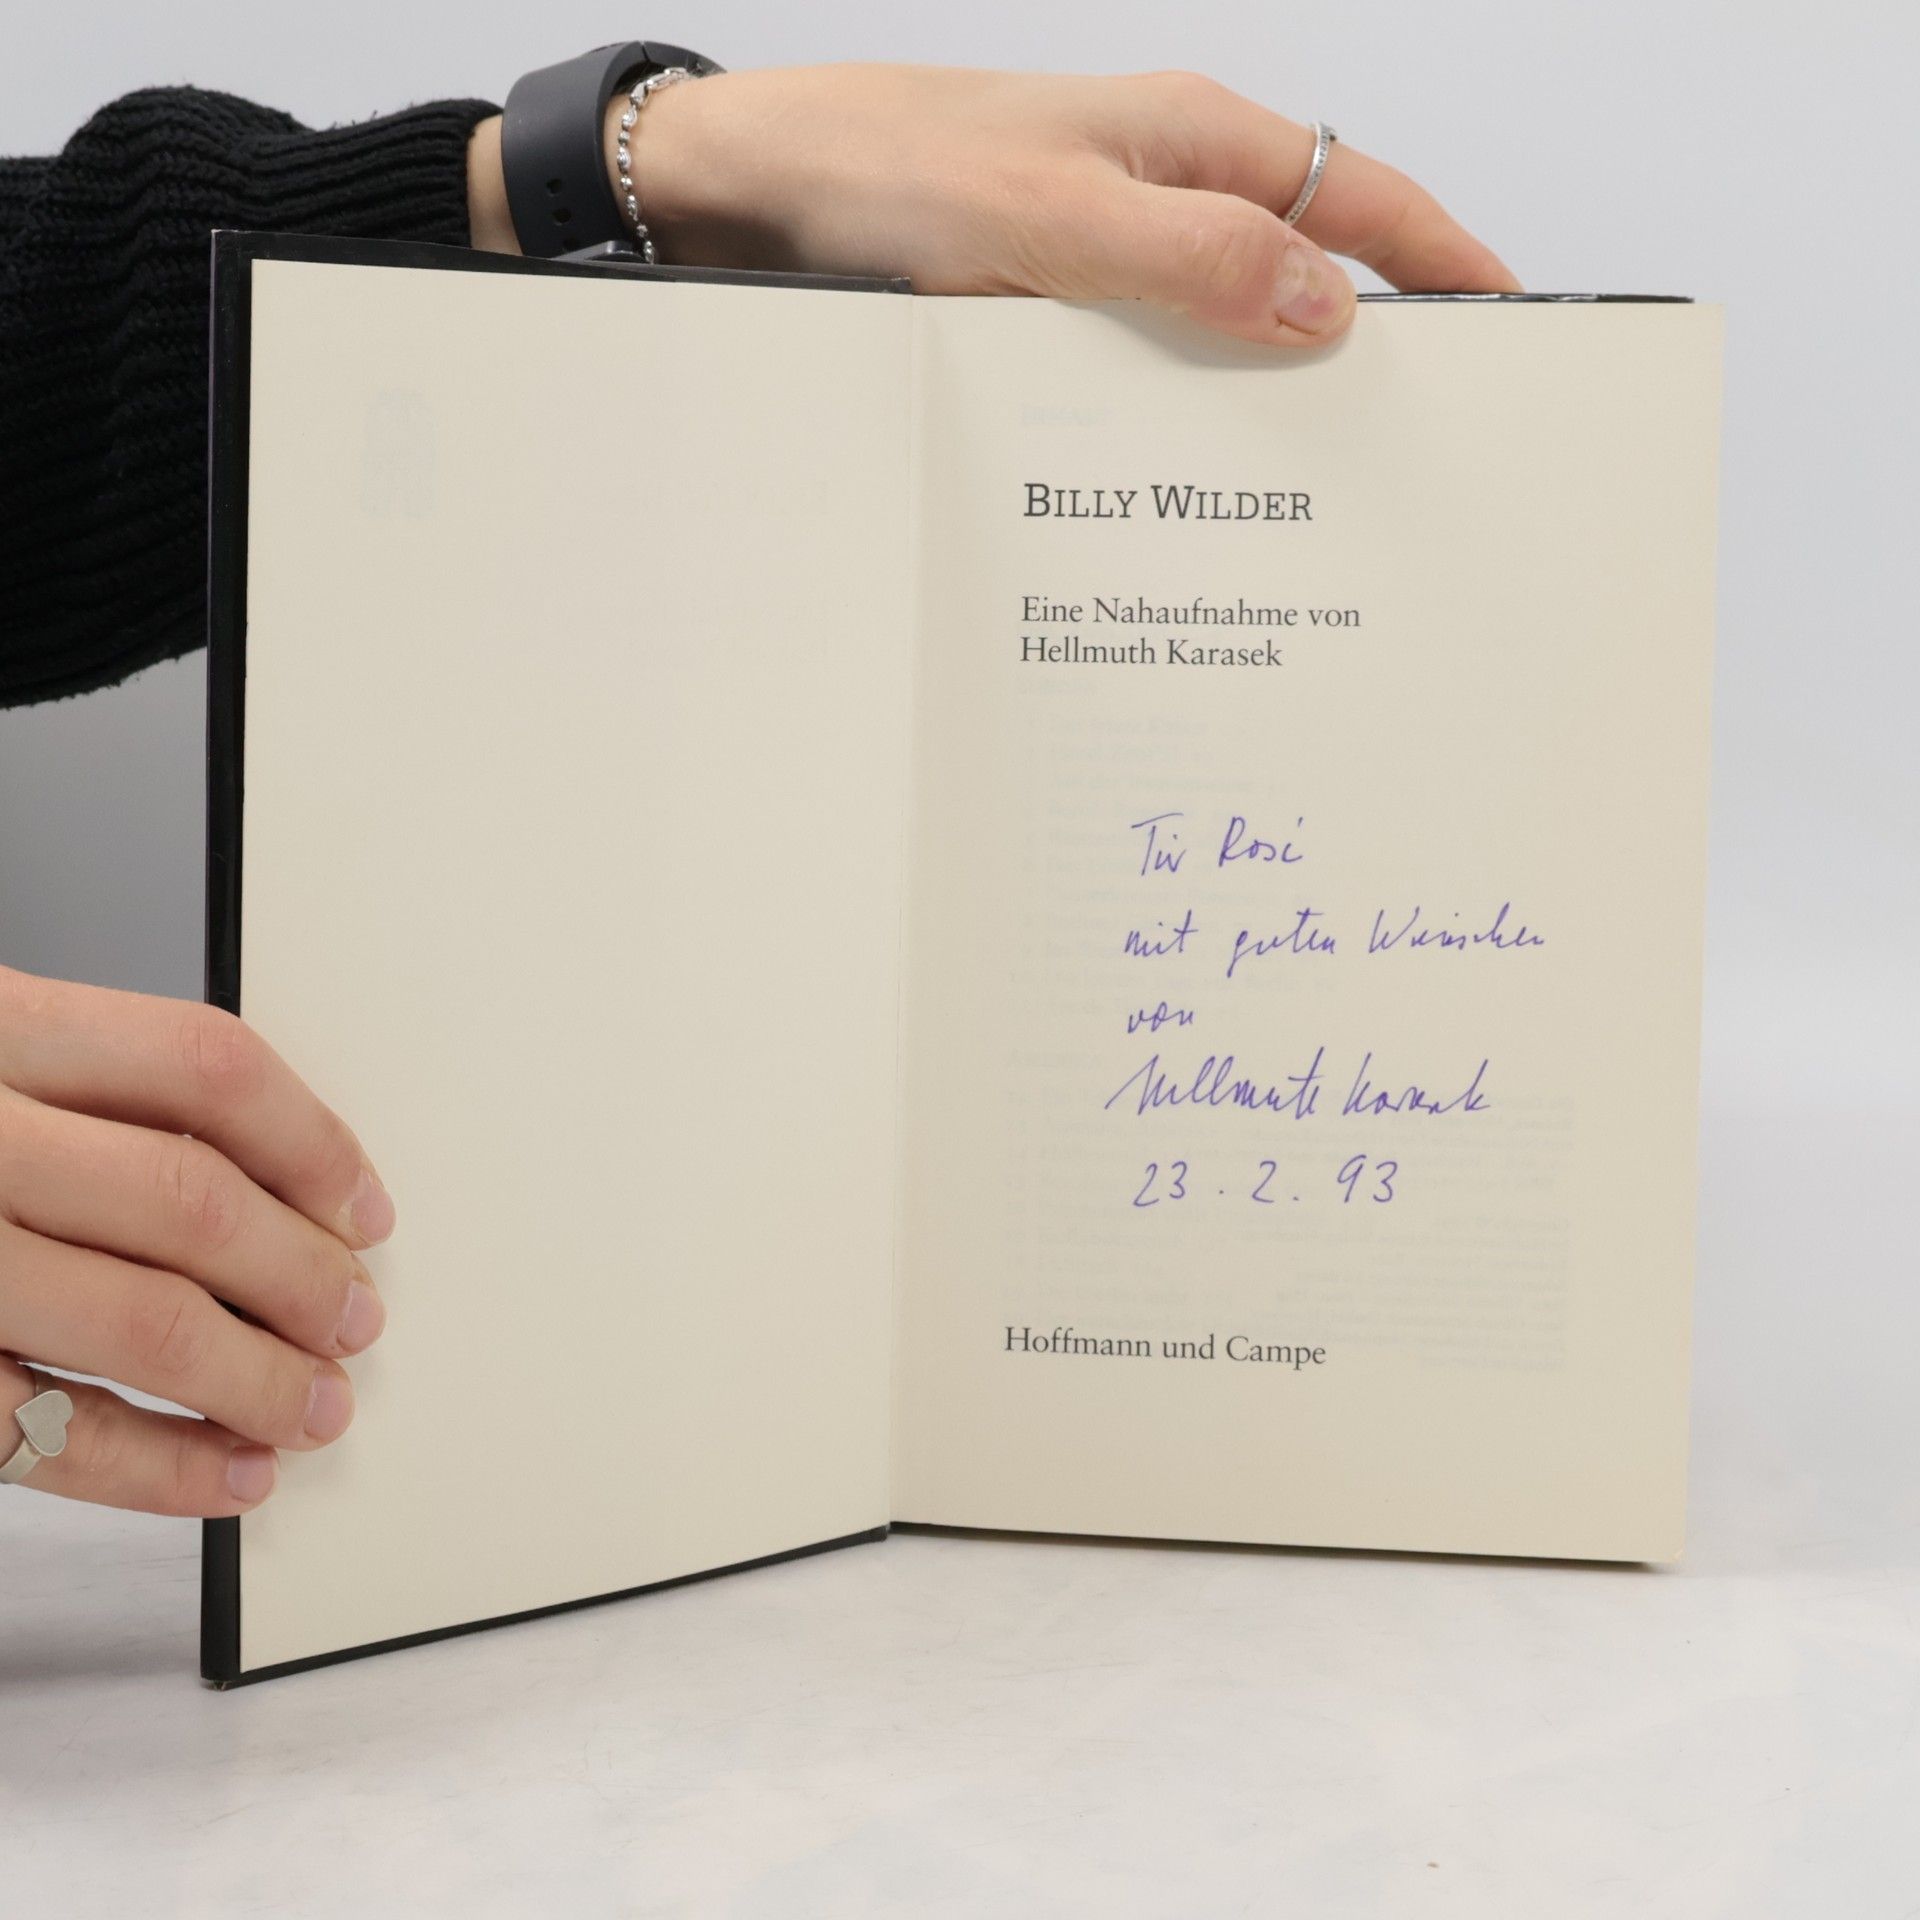 BILLY WILDER
Eine Nahaufnahme von
Hellmuth Karasek
Für Rosi
mit guten Wünschen
von
Hellmuth Karasek
23. 2. 93
Hoffmann und Campe